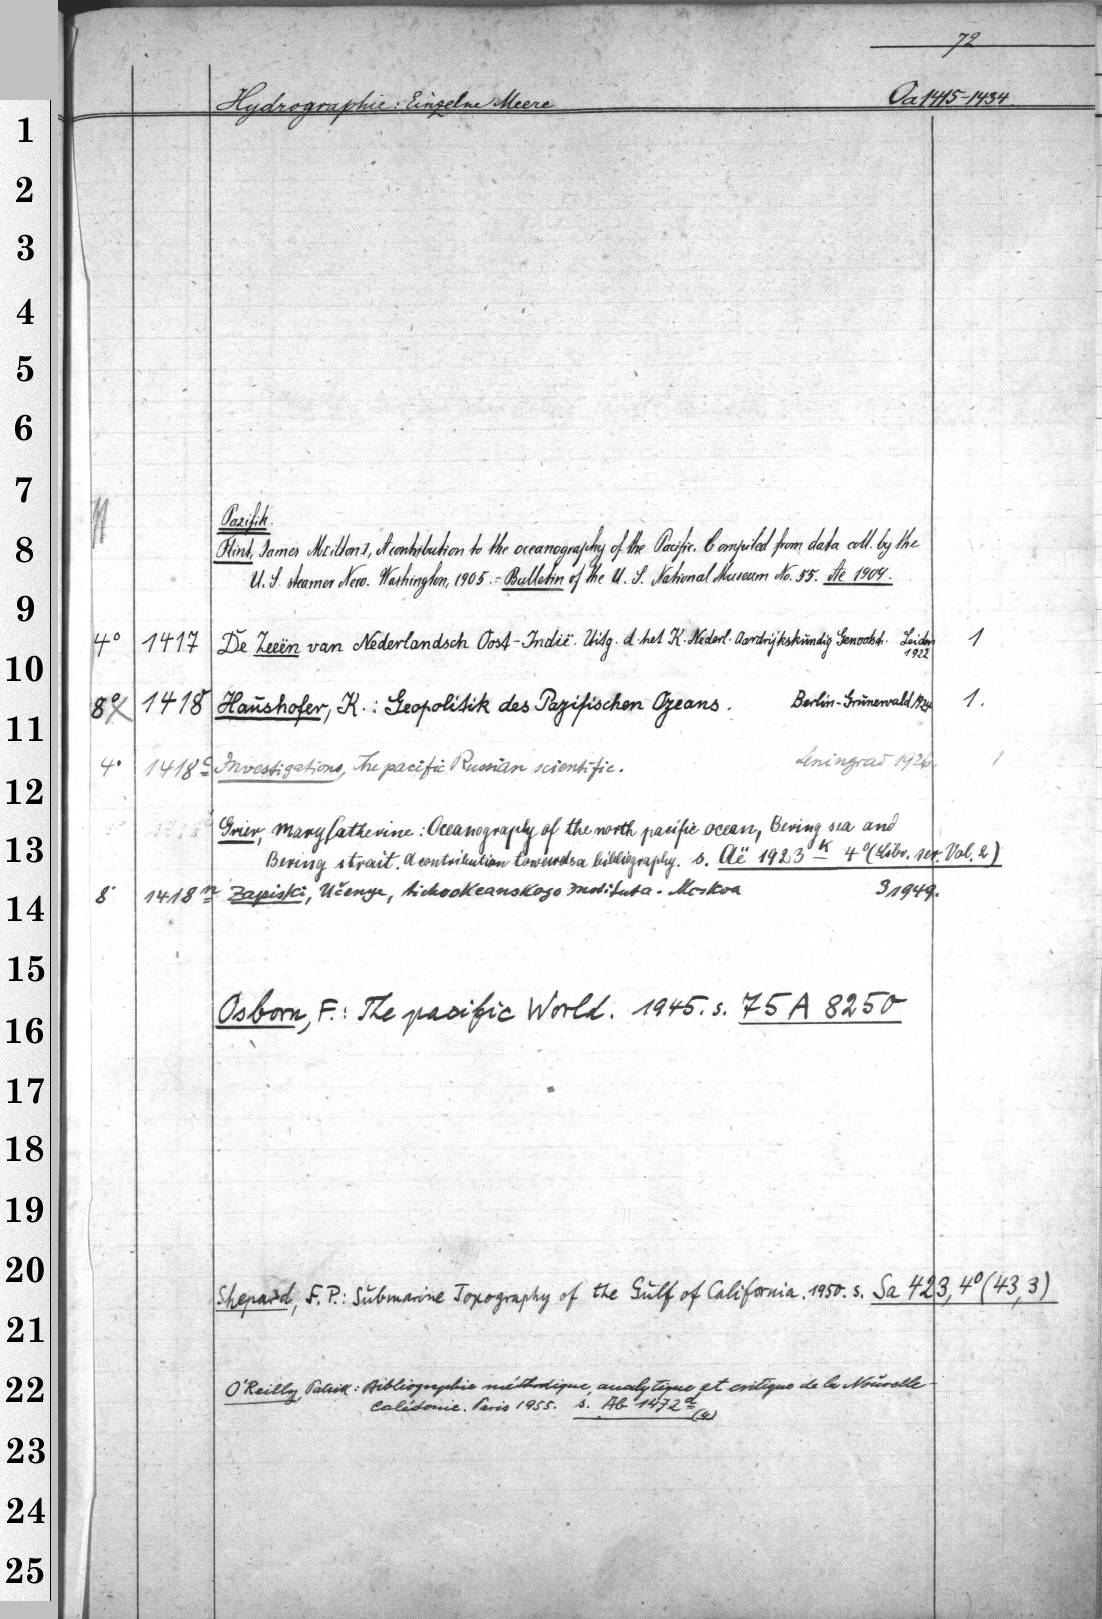 72
Hydrographie: Einzelne Meere Oa 1415-1434
1
2
3
4
5
6
7
8
9
10
11
12
13
14
15
16
17
18
19
20
21
22
23
24
25
Pazifik.
Flint, James M., A contribution to the oceanography of the Pacific. Compiled from data coll. by the
U. S. steamer Nero. Washington, 1905. = Bulletin of the U. S. National Museum No. 55. Ae 1909.
4° 1417 De Zeeën van Nederlandsch Oost-Indië. Uitg. d. het K. Nederl. Aardrijkskundig Genootsch. Leiden 1922 1
8° 1418 Haushofer, K.: Geopolitik des Pazifischen Ozeans. Berlin-Grunewald 1924 1.
4° 1418c Investigations, The pacific Russian scientific. Leningrad 1926. 1
Grier, Mary Catherine: Oceanography of the north pacific ocean, Bering sea and
Bering strait. A contribution towards a bibliography. s. Aë 1923 K 4° (Libr. ser. Vol. 2)
8° 1418n Zapiski, Učenye, tichookeanskogo Instituta. Moskva 3 1949.
Osborn, F.: The pacific World. 1945. s. 75 A 8250
Shepard, F. P.: Submarine Topography of the Gulf of California. 1950. s. Sa 423, 4° (43,3)
O'Reilly, Patrik: Bibliographie méthodique, analytique et critique de la Nouvelle-
Calédonie. Paris 1955. s. Ab 1472 a (4)